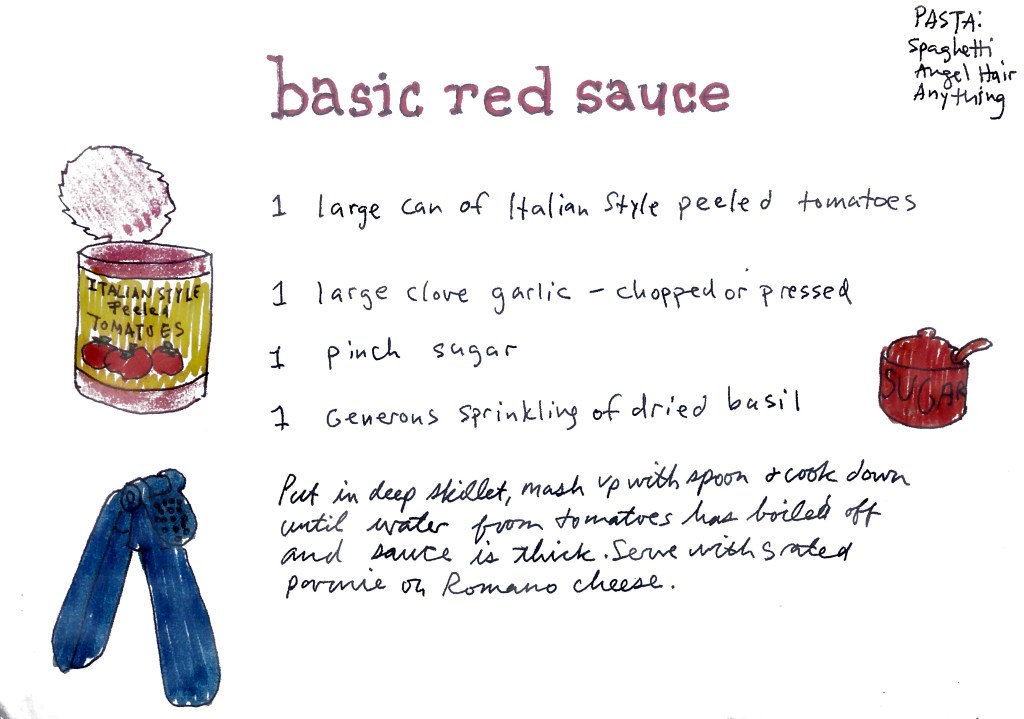 PASTA:
Spaghetti
Angel Hair
Anything
basic red sauce
1 large can of Italian Style peeled tomatoes
ITALIAN STYLE
Peeled
TOMATOES
1 large clove garlic - chopped or pressed
1 pinch sugar
1 Generous sprinkling of dried basil
SUGAR
Put in deep skillet, mash up with spoon & cook down
until water from tomatoes has boiled off
and sauce is thick. Serve with grated
parmie or Romano cheese.